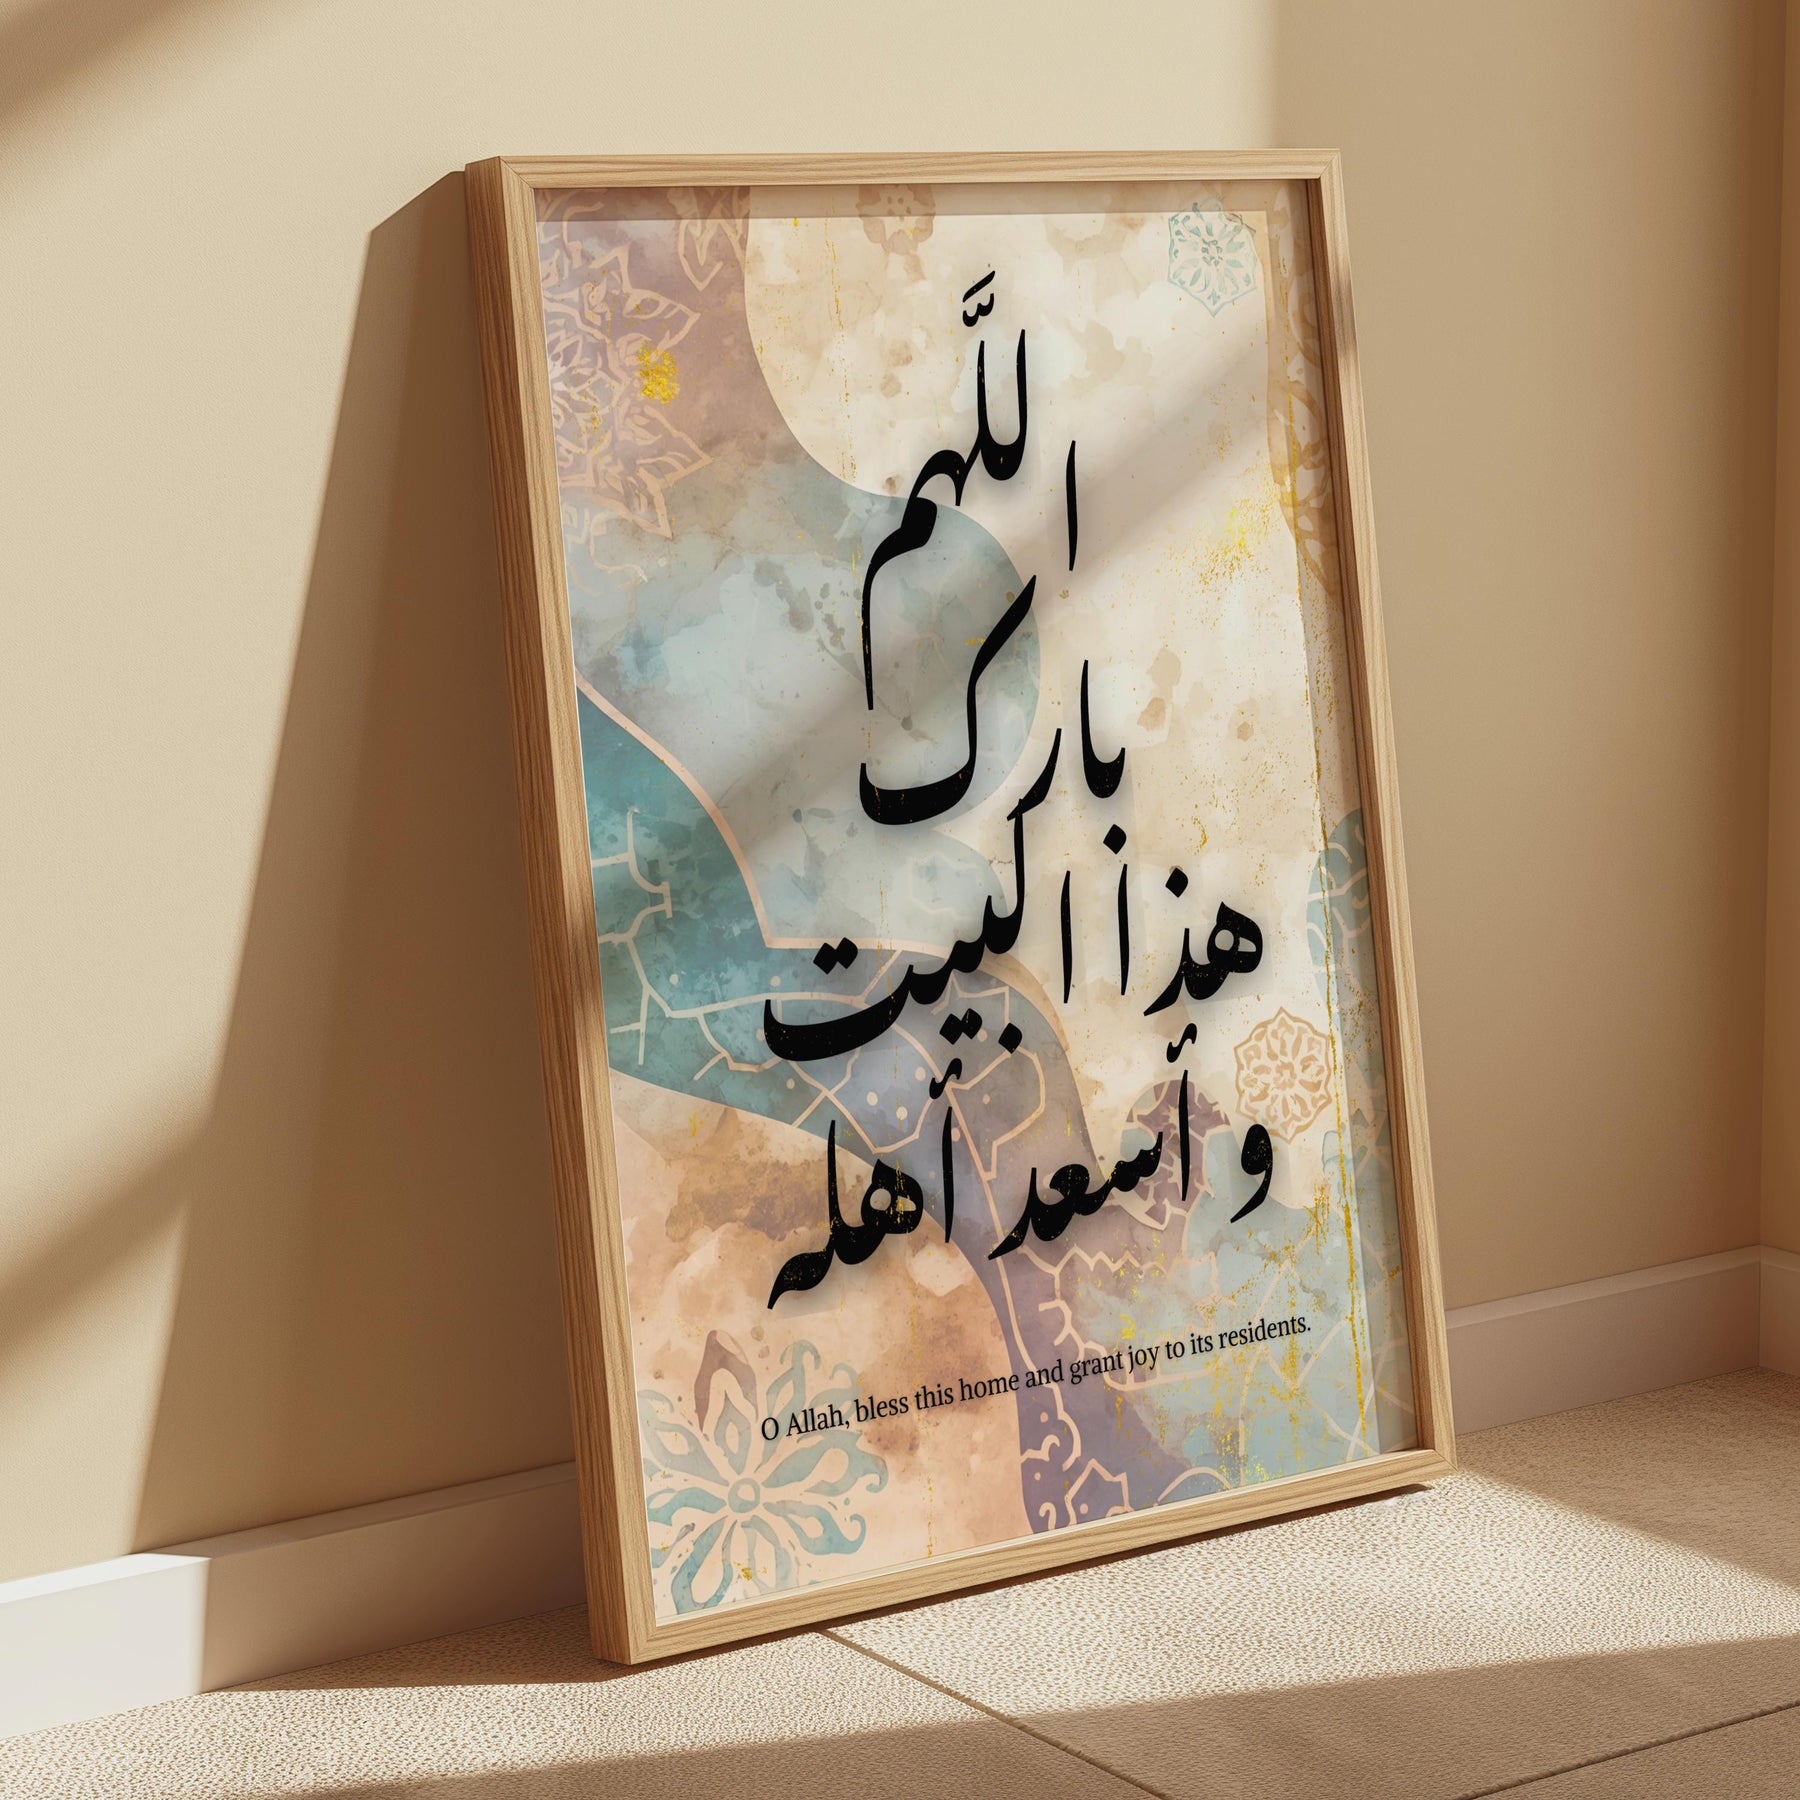 اللَّهم
بارك
هذا البيت
و أسعد أهله
O Allah, bless this home and grant joy to its residents.